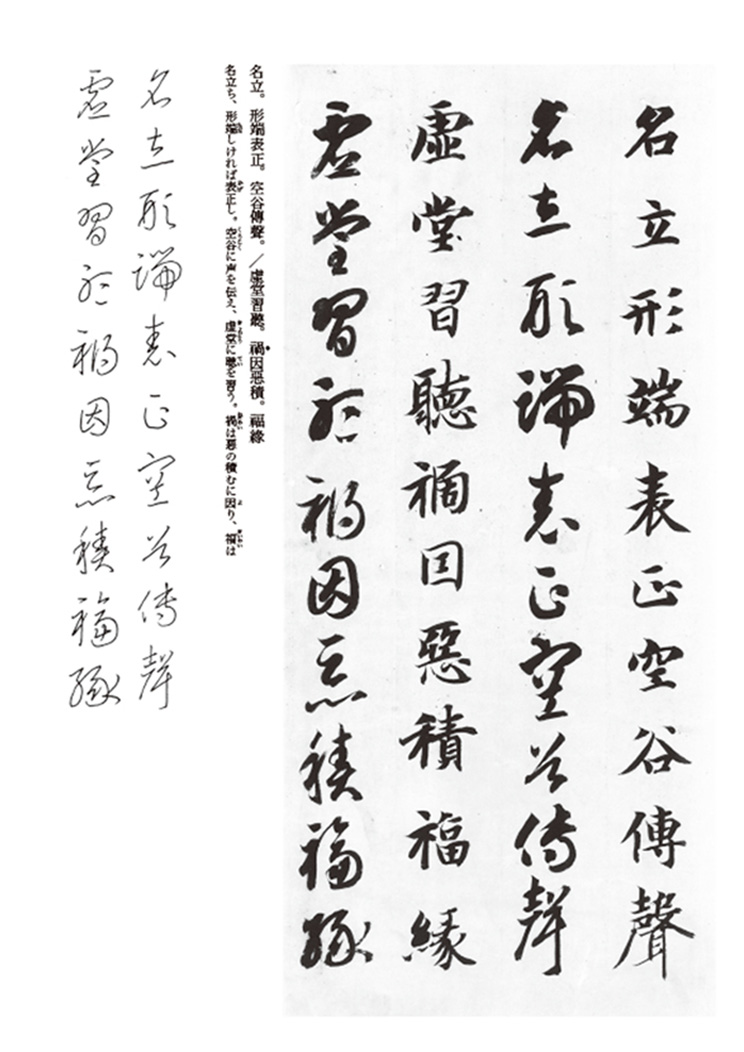 名立形端表正空谷傳聲
名立形端表正空谷傳聲
虛堂習聽禍因惡積福緣
虛堂習聽禍因惡積福緣
名立。形端表正。空谷傳聲。／虚堂習聽。禍因惡積。福緣
名立ち、形端しければ表正し。空谷に声を伝え、虚堂に聴を習う。禍は悪の積むに因り、福は
名立形端表正空谷傳聲
虛堂習聽禍因惡積福緣